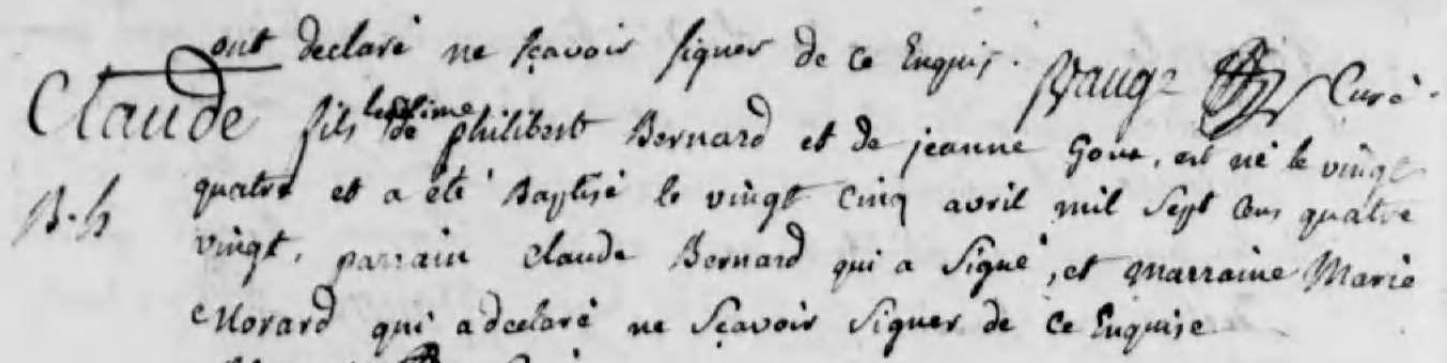 ont declaré ne sçavoir signer de ce Enquis. Curé.
Claude fils legitime de philibert Bernard et de jeanne Gout, est né le vingt
quatre et a été Baptisé le vingt cinq avril mil sept cens quatre
B.h
vingt, parrain Claude Bernard qui a signé, et marraine Marie
Morard qui a declaré ne sçavoir signer de ce Enquise